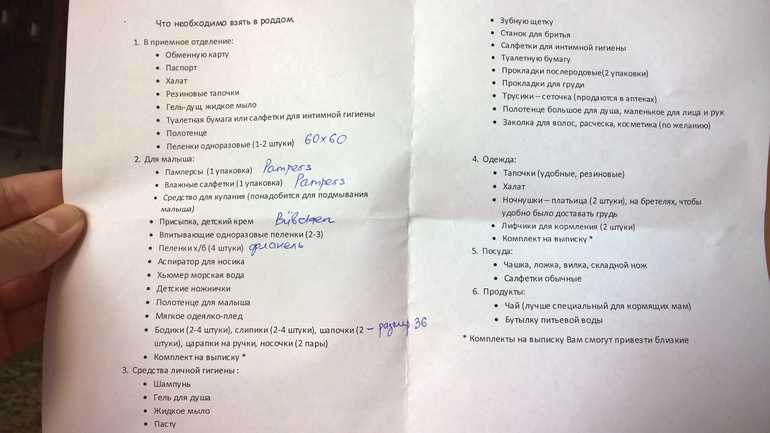 Что необходимо взять в роддом.
1. В приемное отделение:
• Обменную карту
• Паспорт
• Халат
• Резиновые тапочки
• Гель-душ, жидкое мыло
• Туалетная бумага или салфетки для интимной гигиены
• Полотенце
• Пеленки одноразовые (1-2 штуки) 60×60
2. Для малыша:
• Памперсы (1 упаковка) Pampers
• Влажные салфетки (1 упаковка) Pampers
• Средство для купания (понадобится для подмывания
малыша)
• Присыпка, детский крем Bübchen
• Впитывающие одноразовые пеленки (2-3)
• Пеленки х/б (4 штуки) фланель
• Аспиратор для носика
• Хьюмер морская вода
• Детские ножнички
• Полотенце для малыша
• Мягкое одеялко-плед
• Бодики (2-4 штуки), слипики (2-4 штуки), шапочки (2 – размер 36
штуки), царапки на ручки, носочки (2 пары)
• Комплект на выписку *
3. Средства личной гигиены :
• Шампунь
• Гель для душа
• Жидкое мыло
• Пасту
• Зубную щетку
• Станок для бритья
• Салфетки для интимной гигиены
• Туалетную бумагу
• Прокладки послеродовые(2 упаковки)
• Прокладки для груди
• Трусики – сеточка (продаются в аптеках)
• Полотенце большое для душа, маленькое для лица и рук
• Заколка для волос, расческа, косметика (по желанию)
4. Одежда:
• Тапочки (удобные, резиновые)
• Халат
• Ночнушки – платьица (2 штуки), на бретелях, чтобы
удобно было доставать грудь
• Лифчики для кормления (2 штуки)
• Комплект на выписку *
5. Посуда:
• Чашка, ложка, вилка, складной нож
• Салфетки обычные
6. Продукты:
• Чай (лучше специальный для кормящих мам)
• Бутылку питьевой воды
* Комплекты на выписку Вам смогут привезти близкие